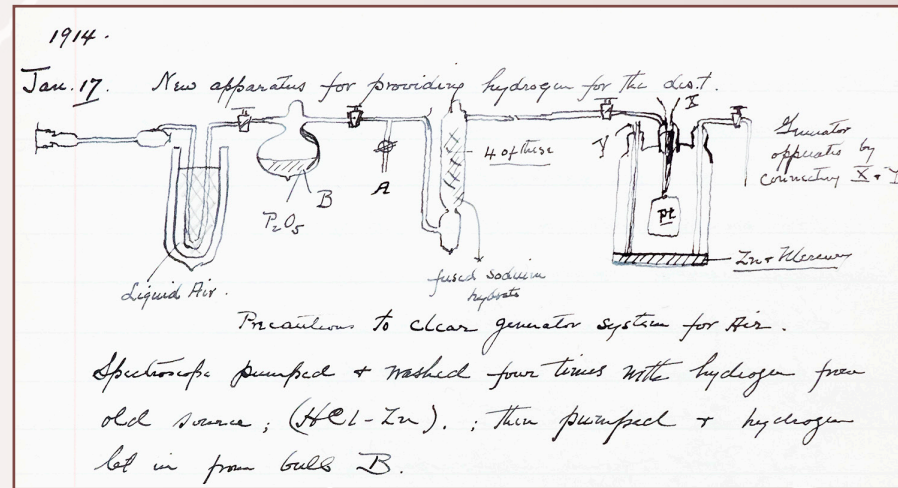 1914.
Jan. 17. New apparatus for providing hydrogen for the dist.
X
Y
4 of these
Generator
operates by
connecting X + Y
A
B
P2O5
pt
Zn + Mercury
Liquid Air.
fused sodium
hydrate
Precautions to clear generator system for Air.
Spectroscope pumped + washed four times with hydrogen from
old source; (HCl-Zn).; then pumped + hydrogen
let in from bulb B.